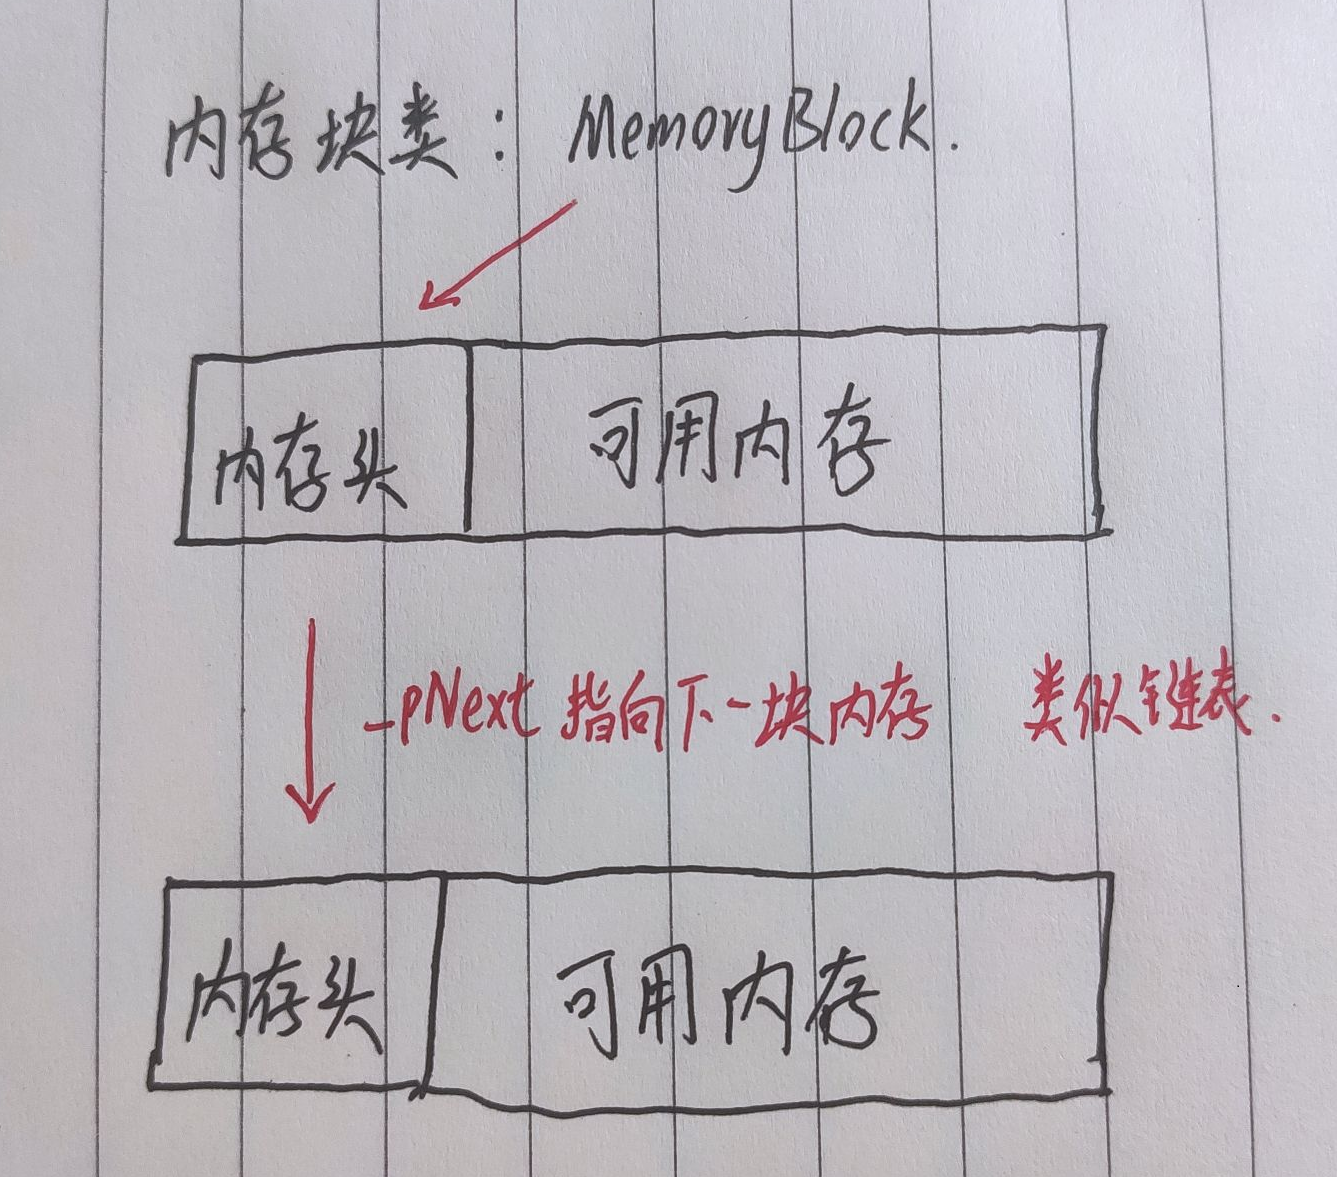 内存块类：MemoryBlock.
内存头 可用内存
_pNext 指向下一块内存 类似链表.
内存头 可用内存